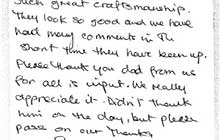 such great craftsmanship.
They look so good and we have
had many comments in the
short time they have been up.
Please thank you dad from us
for all is input. We really
appreciate it. Didn't thank
him on the day, but please
pass on our thanks.